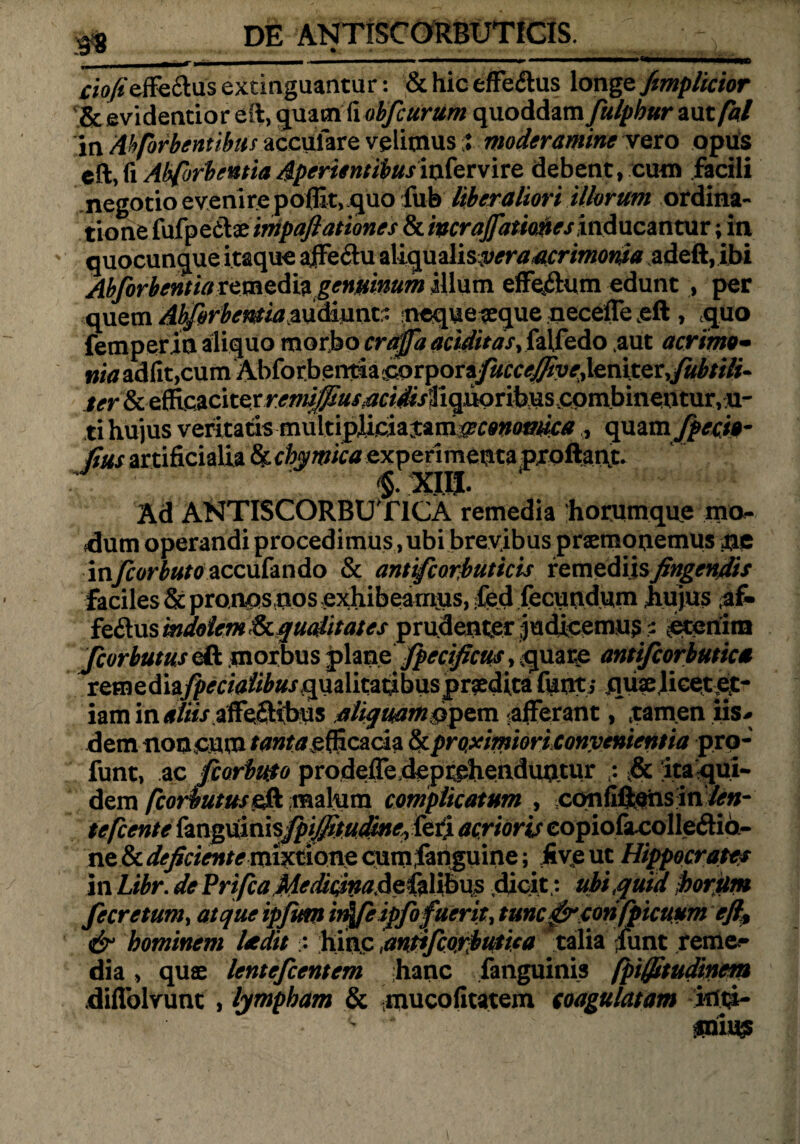 98 DE ANTISCORBUTICIS.
cioſi effectus extinguantur: & hic effectus longe ſimplicior
& evidentior eſt, quam ſi obſcurum quoddam ſulphur aut ſal
in Abſorbentibus accuſare velimus: moderamine vero opus
eſt, ſi Abſorbentia Aperientibus inſervire debent, cum facili
negotio evenire poſſit, quo ſub liberaliori illorum ordina-
tione ſuſpectæ impaſtationes & incraſſationes inducantur; in
quocunque itaque affectu aliqualis vera acrimonia adeſt, ibi
Abſorbentia remedia genuinum illum effectum edunt, per
quem Abſorbentia audiunt: neque æque neceſſe eſt, quo
ſemper in aliquo morbo craſſa aciditas, falſedo aut acrimo-
nia adſit, cum Abſorbentia corpora ſucceſſive, leniter, ſubtili-
ter & efficaciter remiſſius acidis liquoribus combinentur, u-
ti hujus veritatis multiplicia tam œconomica, quam ſpecio-
ſius artificialia & chymica experimenta proſtant.
§. XIII.
Ad ANTISCORBUTICA remedia horumque mo-
dum operandi procedimus, ubi brevibus præmonemus ne
in ſcorbuto accuſando & antiſcorbuticis remediis fingendis
faciles & pronos nos exhibeamus, ſed ſecundum hujus af-
fectus indolem & qualitates prudenter judicemus: etenim
ſcorbutus eſt morbus plane ſpecificus, quare antiſcorbutica
remedia ſpecialibus qualitatibus prædita ſunt; quæ licet et-
iam in aliis affectibus aliquam opem afferant, tamen iis-
dem non cum tanta efficacia & proximiori convenientia pro-
ſunt, ac ſcorbuto prodeſſe deprehenduntur: & ita qui-
dem ſcorbutus eſt malum complicatum, conſiſtens in len-
teſcente ſanguinis ſpiſſitudine, ſeri acrioris copioſa collectio-
ne & deficiente mixtione cum ſanguine; ſive ut Hippocrates
in Libr. de Priſca Medicina de ſalibus dicit: ubi quid horum
ſecretum, atque ipſum in ſe ipſo fuerit, tunc & conſpicuum eſt,
& hominem lædit: hinc antiſcorbutica talia ſunt reme-
dia, quæ lenteſcentem hanc ſanguinis ſpiſſitudinem
diſſolvunt, lympham & mucoſitatem coagulatam inti-
mius